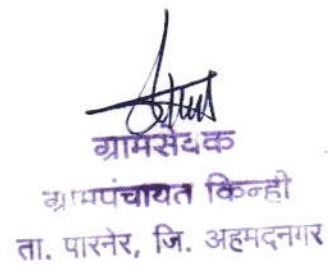 ग्रामसेवक
ग्रामपंचायत किन्ही
ता. पारनेर, जि. अहमदनगर